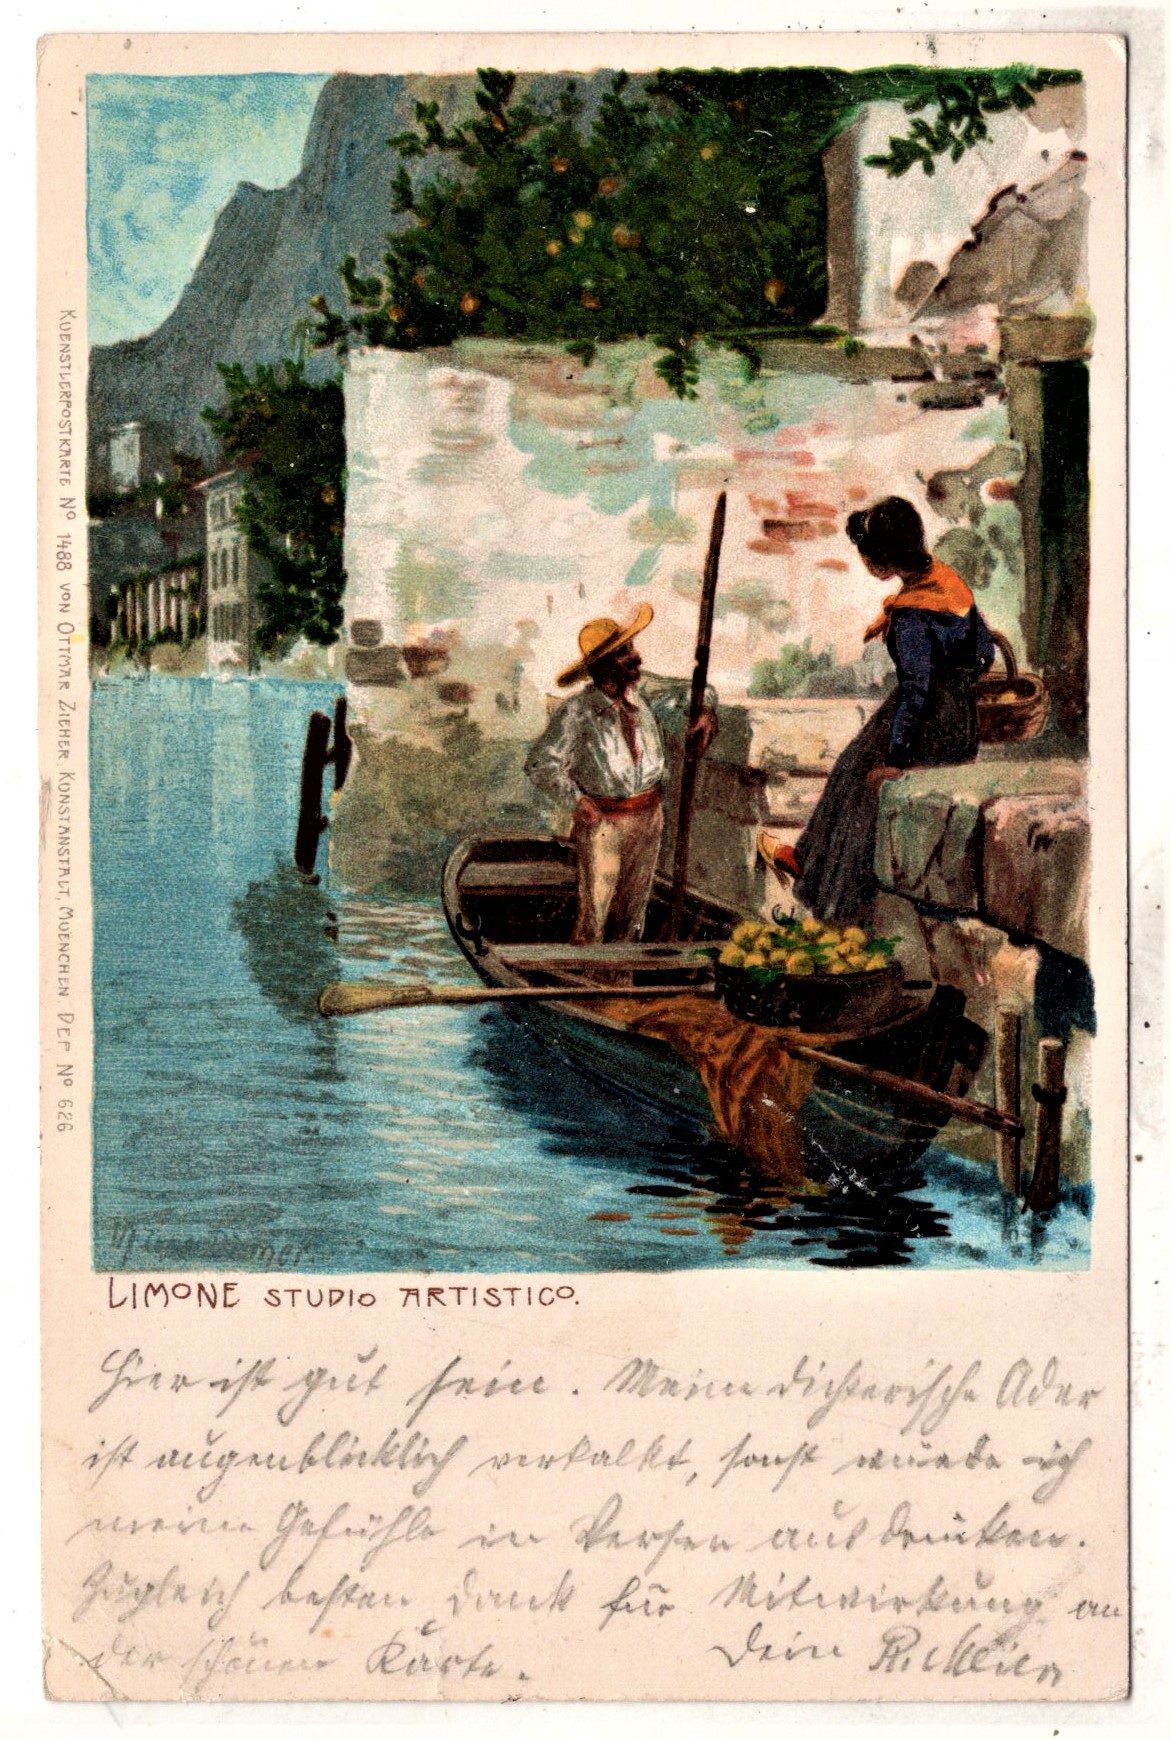 KUENSTLERPOSTKARTE Nº 1488 VON OTTMAR ZIEHER. KUNSTANSTALT, MUENCHEN DEP Nº 626
LIMONE STUDIO ARTISTICO.
Hier ist gut sein. Meine dichterische Ader
ist augenblicklich verkalkt, sonst würde ich
meine Gefühle in Versen ausdrücken.
Zugleich besten Dank für Mitwirkung an
der schönen Karte.
Dein R. Meier